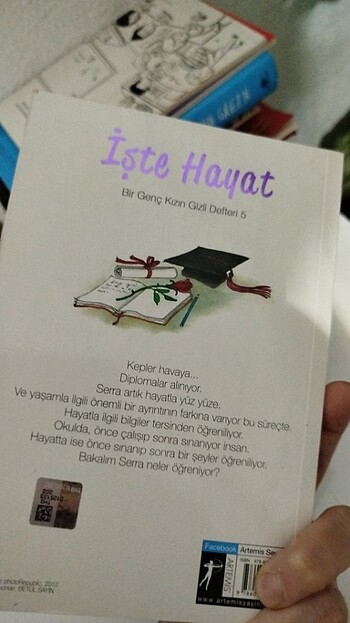 İşte Hayat
Bir Genç Kızın Gizli Defteri 5
Kepler havaya...
Diplomalar alınıyor.
Serra artık hayatla yüz yüze.
Ve yaşamla ilgili önemli bir ayrıntının farkına varıyor bu süreçte.
Hayatla ilgili bilgiler tersinden öğreniliyor.
Okulda, önce çalışıp sonra sınanıyor insan.
Hayatta ise önce sınanıp sonra bir şeyler öğreniliyor.
Bakalım Serra neler öğreniyor?
Facebook Artemis
ISBN
ARTEMİS
photoRepublic, 2012
BETÜL SAYIN